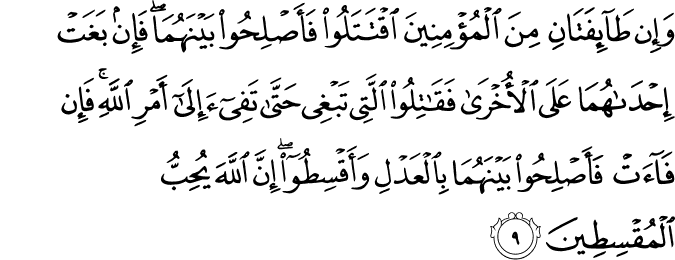 وَإِن طَآئِفَتَانِ مِنَ ٱلْمُؤْمِنِينَ ٱقْتَتَلُوا۟ فَأَصْلِحُوا۟ بَيْنَهُمَا ۖ فَإِنۢ بَغَتْ
إِحْدَىٰهُمَا عَلَى ٱلْأُخْرَىٰ فَقَـٰتِلُوا۟ ٱلَّتِى تَبْغِى حَتَّىٰ تَفِىٓءَ إِلَىٰٓ أَمْرِ ٱللَّهِ ۚ فَإِن
فَآءَتْ فَأَصْلِحُوا۟ بَيْنَهُمَا بِٱلْعَدْلِ وَأَقْسِطُوٓا۟ ۖ إِنَّ ٱللَّهَ يُحِبُّ
ٱلْمُقْسِطِينَ ٩